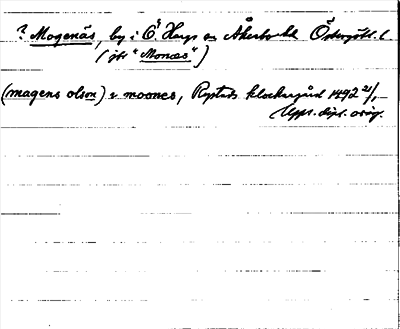 ? Mogenäs, by i Ö Husby sn Åkerbo hd Östergötl. l
(jfr "Monæs")
(magens olson) i moones, Rystads klockargård 1492 21/1
Upps. dipl. orig.